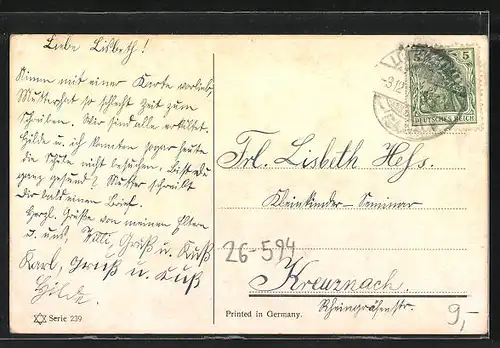 Liebe Lisbeth!
Nimm mit einer Karte vorlieb,
Mutter hat so schlecht Zeit zum
Schreiben. Wir sind alle erkältet.
Hilde u. ich konnten sogar heute
die Schule nicht besuchen. Bist Du
ganz gesund? Mutter schreibt
Dir bald einen Brief.
Herzl. Grüße von meinen Eltern
u. uns, Willi, Gruß u. Kuß
Karl, Gruß u. Kuß
Hilde.
Serie 239
5
DEUTSCHES REICH
Frl. Lisbeth Hess.
Kleinkinder-Seminar
26-594
Kreuznach.
Rheingrafenstr.
9,-
Printed in Germany.